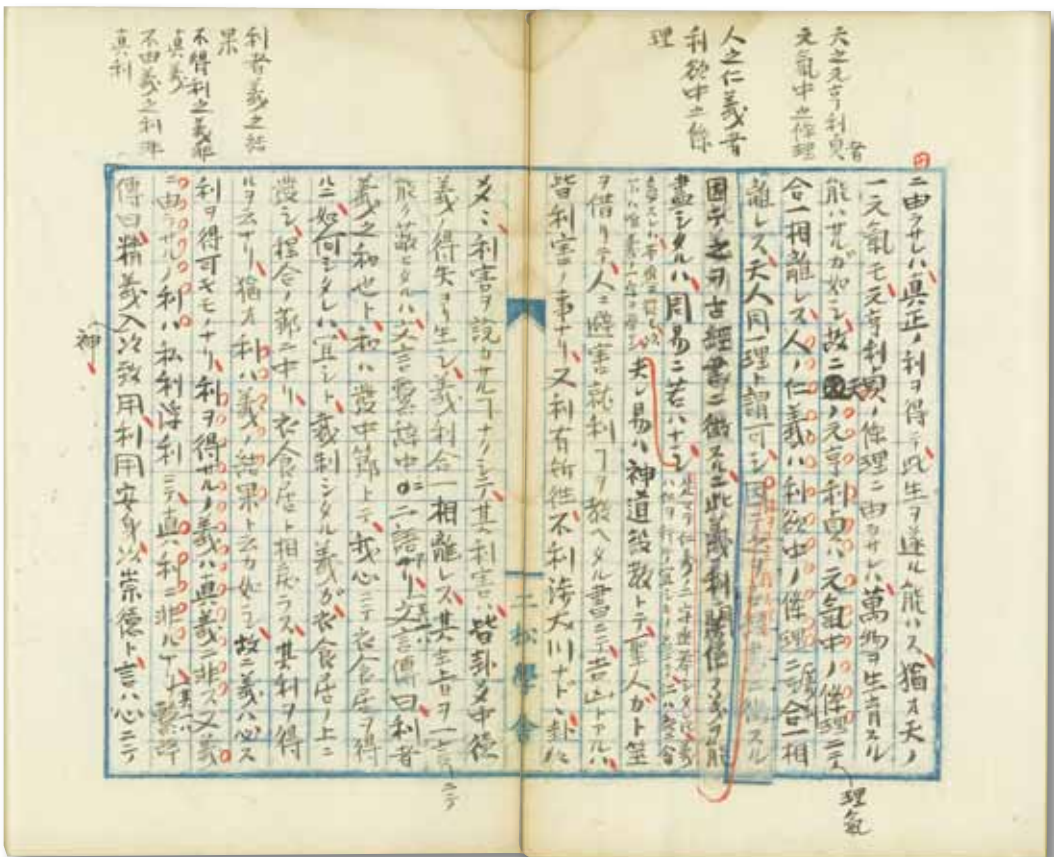 天之元亨利貞者
元氣中之條理
人之仁義者
利欲中之條
理
ニ由ラサレハ真正ノ利ヲ得テ此生ヲ遂ル能ハス猶ホ天ノ
一元氣モ元亨利貞ノ條理ニ由ラサレハ萬物ヲ生育スル
能ハサルガ如シ故ニ天ノ元亨利貞ハ元氣中ノ條理ニテ理氣
合一相離レス人ノ仁義ハ利欲中ノ條理ニ合一相
離レス天人同一理ト謂可シ
因テ之ヲ古經書ニ徴スルニ此義利ヲ能
盡シタルハ周易ニ若ハナシ
夫レ易ハ神道設教トテ聖人ガト筮
ヲ借リテ人ニ避害就利ヿヲ教ヘタル書ニテ吉凶トアルハ
皆利害ノ事ナリ又利有所往不利渉大川ナト卦々
爻々利害ヲ説カサルヿナクシテ其利害ハ皆卦爻中德
義ノ得失ヨリ生シ義利合一相離レス其主旨ヲ一言ニテ
能ク蔽ヒタルハ文言繋辞中ノ二語ナリ文言傳曰利者
義之和也ト和ハ發中節トテ我心ニテ衣食居ヲ得
ルニ如何シタレハ宜シト裁制シタル義ガ衣食居ノ上ニ
發シ程合ノ節ニ中リ衣食居ト相戻ラス其利ヲ得
ルヲ云ナリ猶ホ利ハ義ノ結果ト云カ如シ故ニ義ハ必ス
利ヲ得可キモノナリ利ヲ得サルノ義ハ真義ニ非ス又義
ニ由ラサルノ利ハ私利浮利ニテ真ノ利ニ非ルナリ繋辞
傳曰精義入神以致用利用安身以崇德ト言ハ心ニテ
利者義之結
果
不得利之義非
真義
不由義之利非
真利
二松學舍